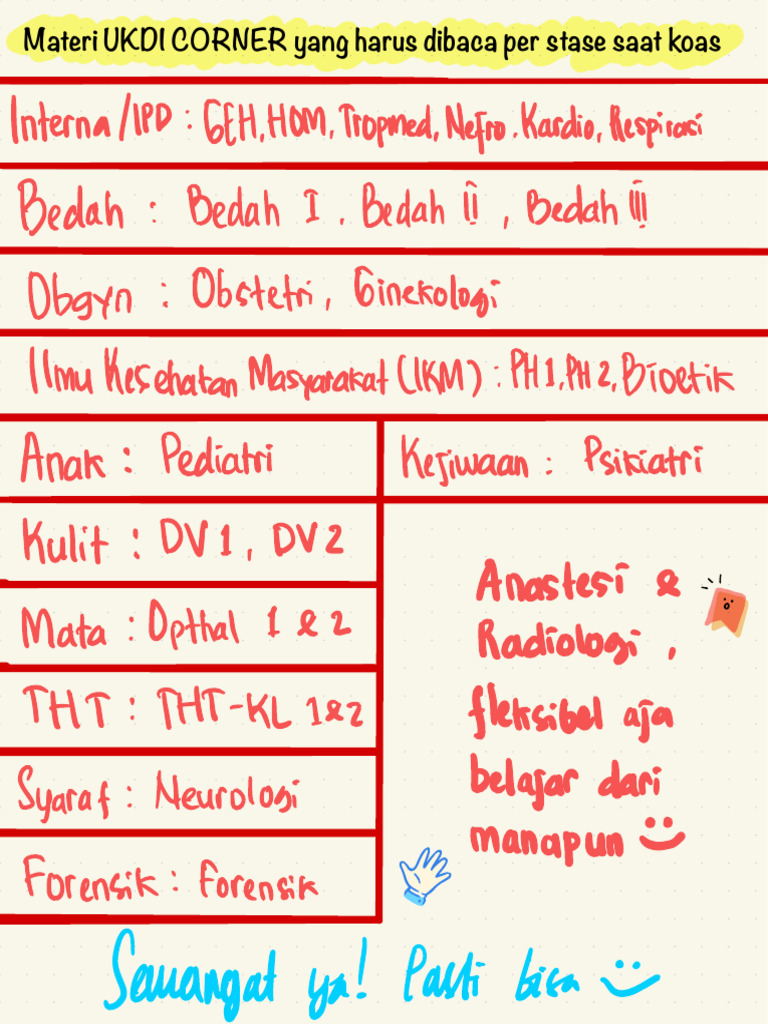 Materi UKDI CORNER yang harus dibaca per stase saat koas
Interna/IPD : GEH, HOM, Tropmed, Nefro. Kardio, Respirasi
Bedah : Bedah I . Bedah II , Bedah III
Obgyn : Obstetri, Ginekologi
Ilmu Kesehatan Masyarakat (IKM) : PH1, PH2, Bioetik
Anak : Pediatri
Kejiwaan : Psikiatri
Kulit : DV1, DV2
Mata : Opthal 1 & 2
THT : THT-KL 1&2
Syaraf : Neurologi
Forensik : Forensik
Anastesi &
Radiologi,
fleksibel aja
belajar dari
manapun
Semangat ya! Pasti bisa